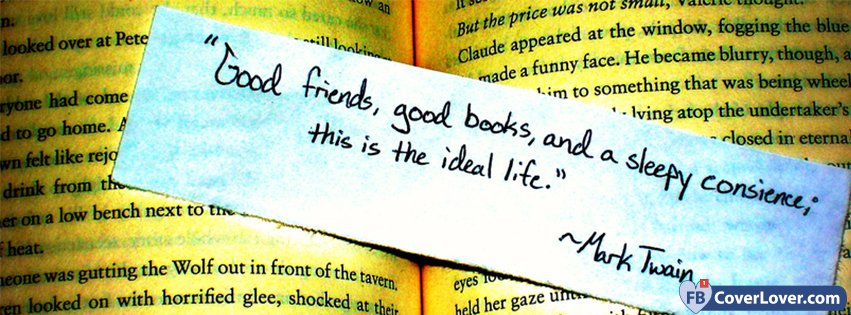 now an
looked over at Pete
still looking
oor.
ryone had come
d to go home. A
wn felt like rejo
drink from the
er on a low bench next to the
f heat.
eone was gutting the Wolf out in front of the tavern.
ren looked on with horrified glee, shocked at their
"Good friends, good books, and a sleepy consience;
this is the ideal life."
~Mark Twain
But the price was not small, Valerie thought.
Claude appeared at the window, fogging the blue
made a funny face. He became blurry, though, a
him to something that was being wheel
lying atop the undertaker's
closed in eternal
eyes
held her gaze until
FB 1 CoverLover.com